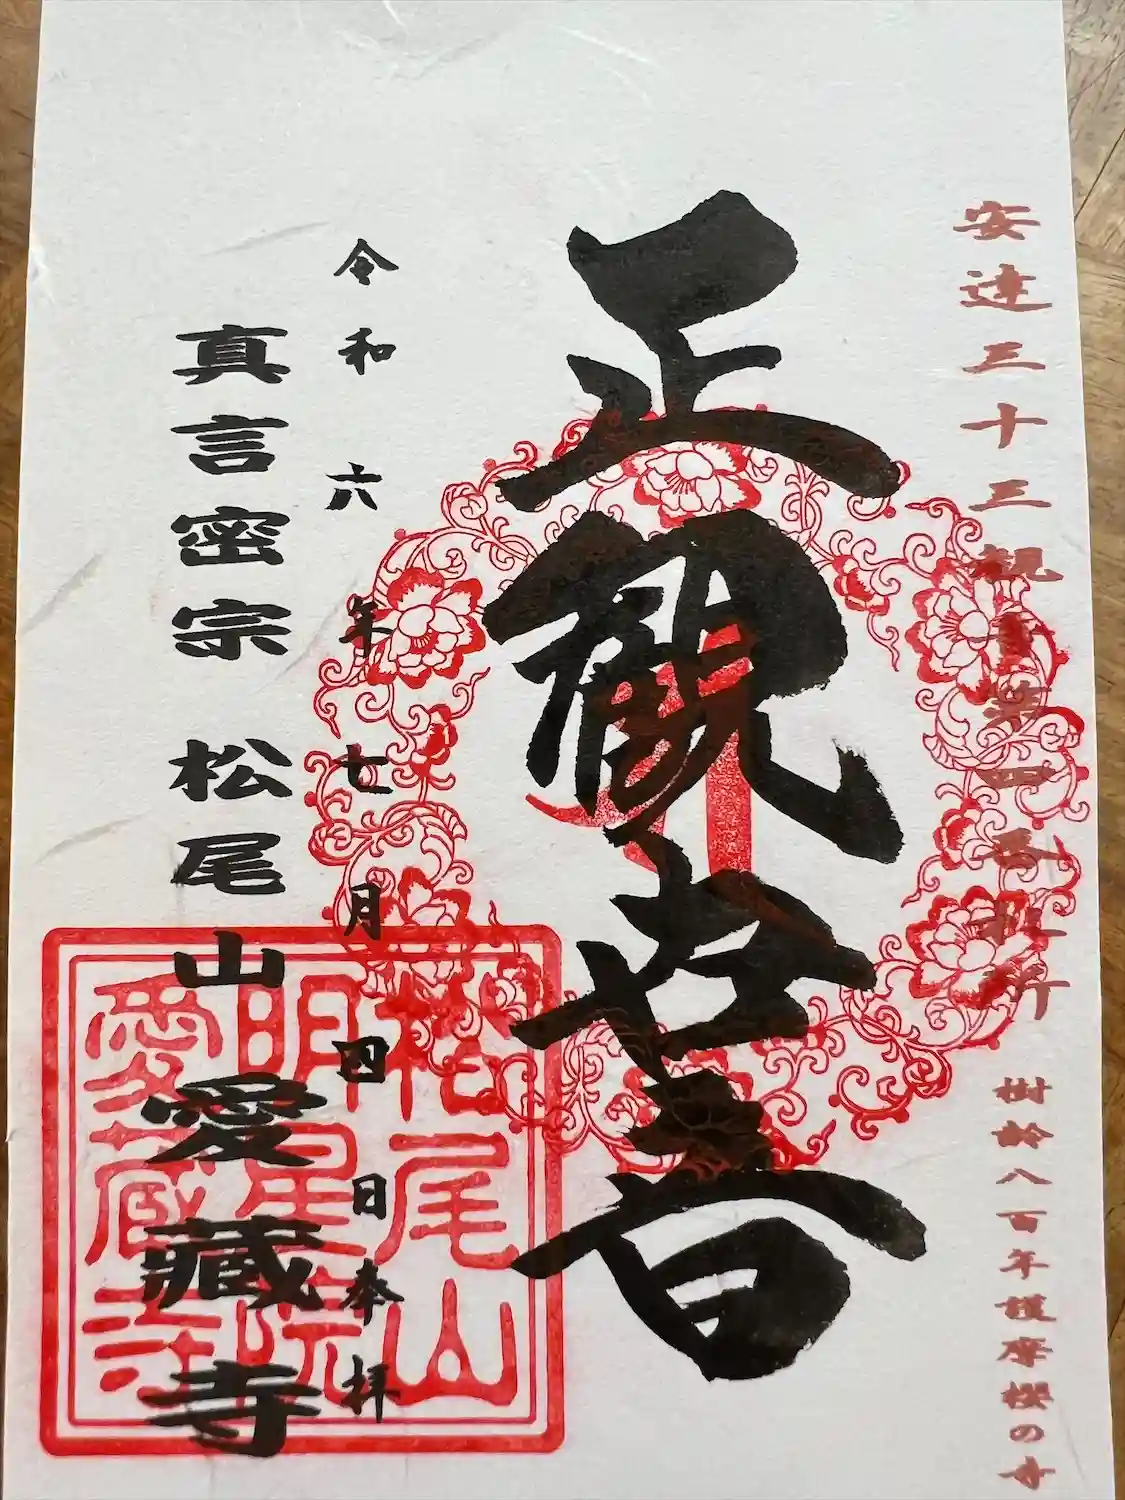 安達三十三観音第四番札所 樹齢八百年護摩桜の寺
正觀世音
令和六年七月四日奉拝
真言密宗 松尾山愛藏寺
松尾山
明星院
愛蔵寺